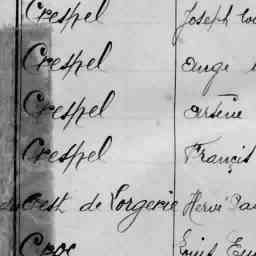 Crespel Joseph
Crespel Ange
Crespel Arsène
Crespel Françis
du Crest de Lorgerie Hervé
Croc